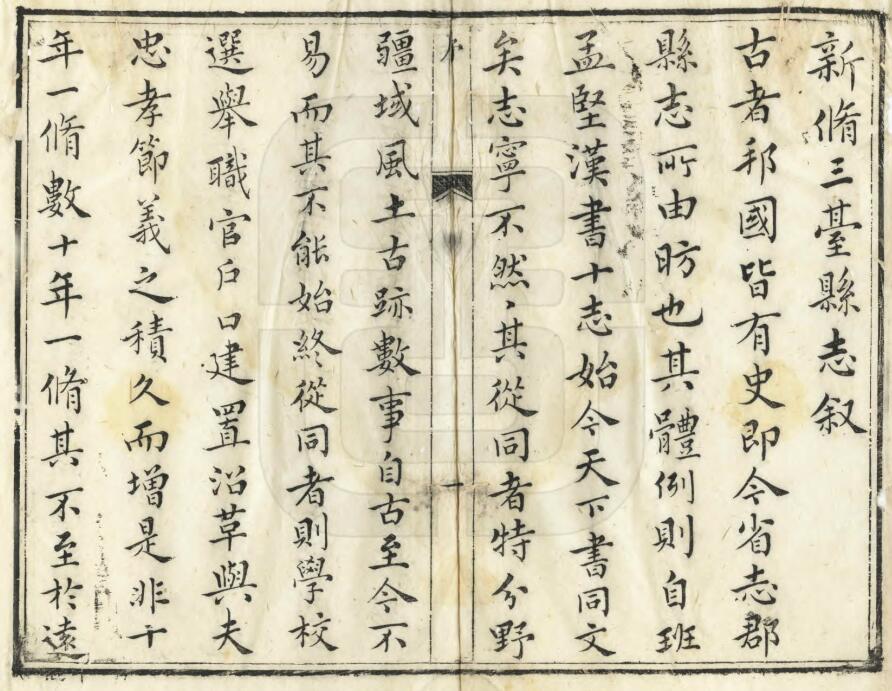 新脩三臺縣志叙
古者邦國皆有史即今省志郡
縣志所由昉也其體例則自班
孟堅漢書十志始今天下書同文
矣志寧不然然其從同者特分野
序
一
疆域風土古跡數事自古至今不
易而其不能始終從同者則學校
選舉職官戶口建置沿革與夫
忠孝節義之積久而增是非十
年一脩數十年一脩其不至於遠